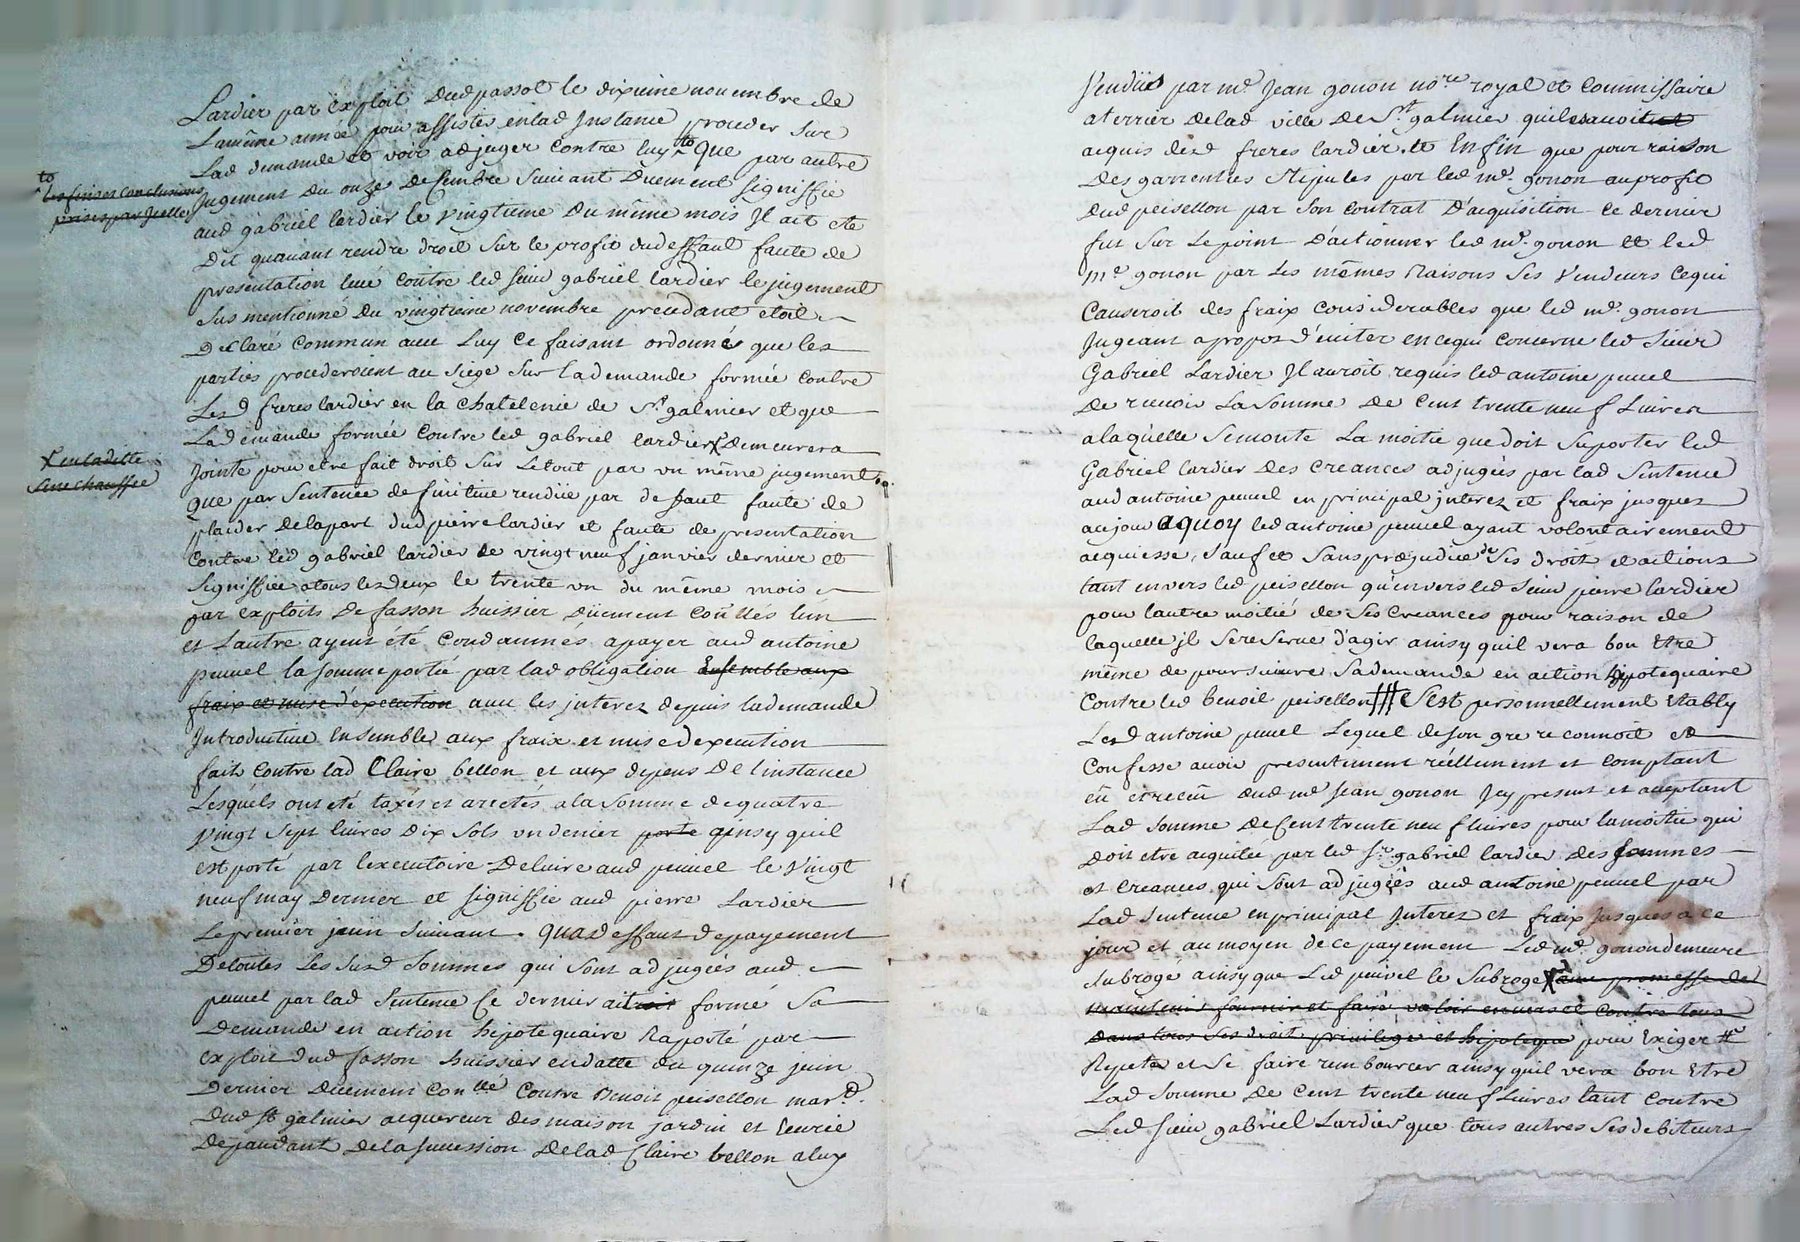 Lardier par exploit dud passot le dixieme novembre de
La même année pour assister en lad Instance proceder sur
Lad demande et voir adjuger contre luy Que par autre
to Les fins et conclusions
prises par Icelle
Jugement du onze decembre suivant duement signiffie
aud gabriel lardier le vingtieme du même mois Il ait ete
Dit quavant rendre droit sur le profit du deffaut faute de
presentation levé contre led sieur gabriel lardier le jugement
sus mentionné du vingtieme novembre precedant etoit
Declaré commun avec Luy Ce faisant ordonné que les
parties procederoient au siege sur la demande formée contre
Lesd freres lardier en la Chatelenie de St galmier et que
La demande formée contre led gabriel lardier X demeurera
X en ladite
senechaussée
Jointe pour etre fait droit sur Le tout par un même jugement
Que par Sentence definitive rendüe par defaut faute de
plaider de la part dud pierre lardier et faute de presentation
Contre led gabriel lardier le vingt neuf janvier dernier et
signiffiée a tous les deux le trente un du même mois
par exploits de fasson huissier düement con'llés lun
et Lautre ayent été condamnés a payer aud antoine
peuvel la somme porté par lad obligation Ensemble aux
fraix et mise d'execution avec les interez depuis la demande
Introductive Ensemble aux fraix et mise dexecution
fait contre lad Claire bellon et aux depens de l'instance
Lesquels ont été taxés et aretés a la somme de quatre
vingt sept livres dix sols un denier porté ainsy quil
est porté par lexecutoire Delivré aud peuvel le vingt
neuf may dernier et signiffie aud pierre Lardier
Le premier juin suivant. Qua deffaut de payement
De toutes Les susd Sommes qui sont adjugées aud
peuvel par lad Sentence Ce dernier ait formé Sa
Demande en action hipotequaire Raporté par
exploit dud fasson huissier en datte du quinze juin
Dernier duement con'llé contre Benoit peisellon mard.
Dud St galmier acquereur des maison jardin et
Dependant de la succession de lad Claire bellon a luy
Vendües par me Jean gonon nore royal et Commissaire
a terrier de lad ville de St galmier quil avoit
acquis desd freres lardier. et Enfin que pour raison
Des garrenties Stipulés par led me gonon au profit
dud peisellon par Son Contrat D'acquisition Ce dernier
fut Sur Le point D'actionner led me gonon et led
me gonon par Les mêmes Raisons Ses vendeurs Ce qui
Causeroit des fraix considerables que led me gonon
Jugeant a propos d'éviter en ce qui concerne led Sieur
Gabriel Lardier Il auroit requis led antoine peuvel
De recevoir La Somme De Cent trente neuf Livres
a laquelle Se monte La moitié que doit Suporter led
Gabriel lardier Des Creances adjugées par lad Sentence
aud antoine peuvel en principal interez et fraix jusques
au jour a quoy led antoine peuvel ayant volontairement
acquiessé, Sauf et Sans prejudice de Ses droit et actions
tant envers led peisellon qu'envers led sieur pierre lardier
pour lautre moitié de Ses Creances pour raison de
laquelle il Se reserve d'agir ainsy quil vera bon Etre
même de poursuivre Sa demande en action hipotequaire
Contre led benoit peisellon S'est personnellement Etably
Led antoine peuvel Lequel de Son gre reconnoit et
Confesse avoir presentement réellement et comptant
eü et receü dud me Jean gonon Icy present et aceptant
Lad Somme de Cent trente neuf livres pour la moitie qui
Doit etre acquitée par led Sr gabriel lardier Des Sommes
et Creances qui sont adjugées aud antoine peuvel par
Lad Sentence en principal Interez et fraix jusques a ce
jour et au moyen de ce payement Led me gonon demeure
Subrogé ainsy que Led peuvel le Subroge X avec promesse de
maintenir fournir et faire valoir envers et contre tous
Dans tous Ses droit privilege et hipoteque pour Exiger
Repeter et Se faire rembourcer ainsy quil vera bon Etre
Lad Somme De Cent trente neuf Livres tant Contre
Led sieur gabriel Lardier que tous autres Ses debiteurs